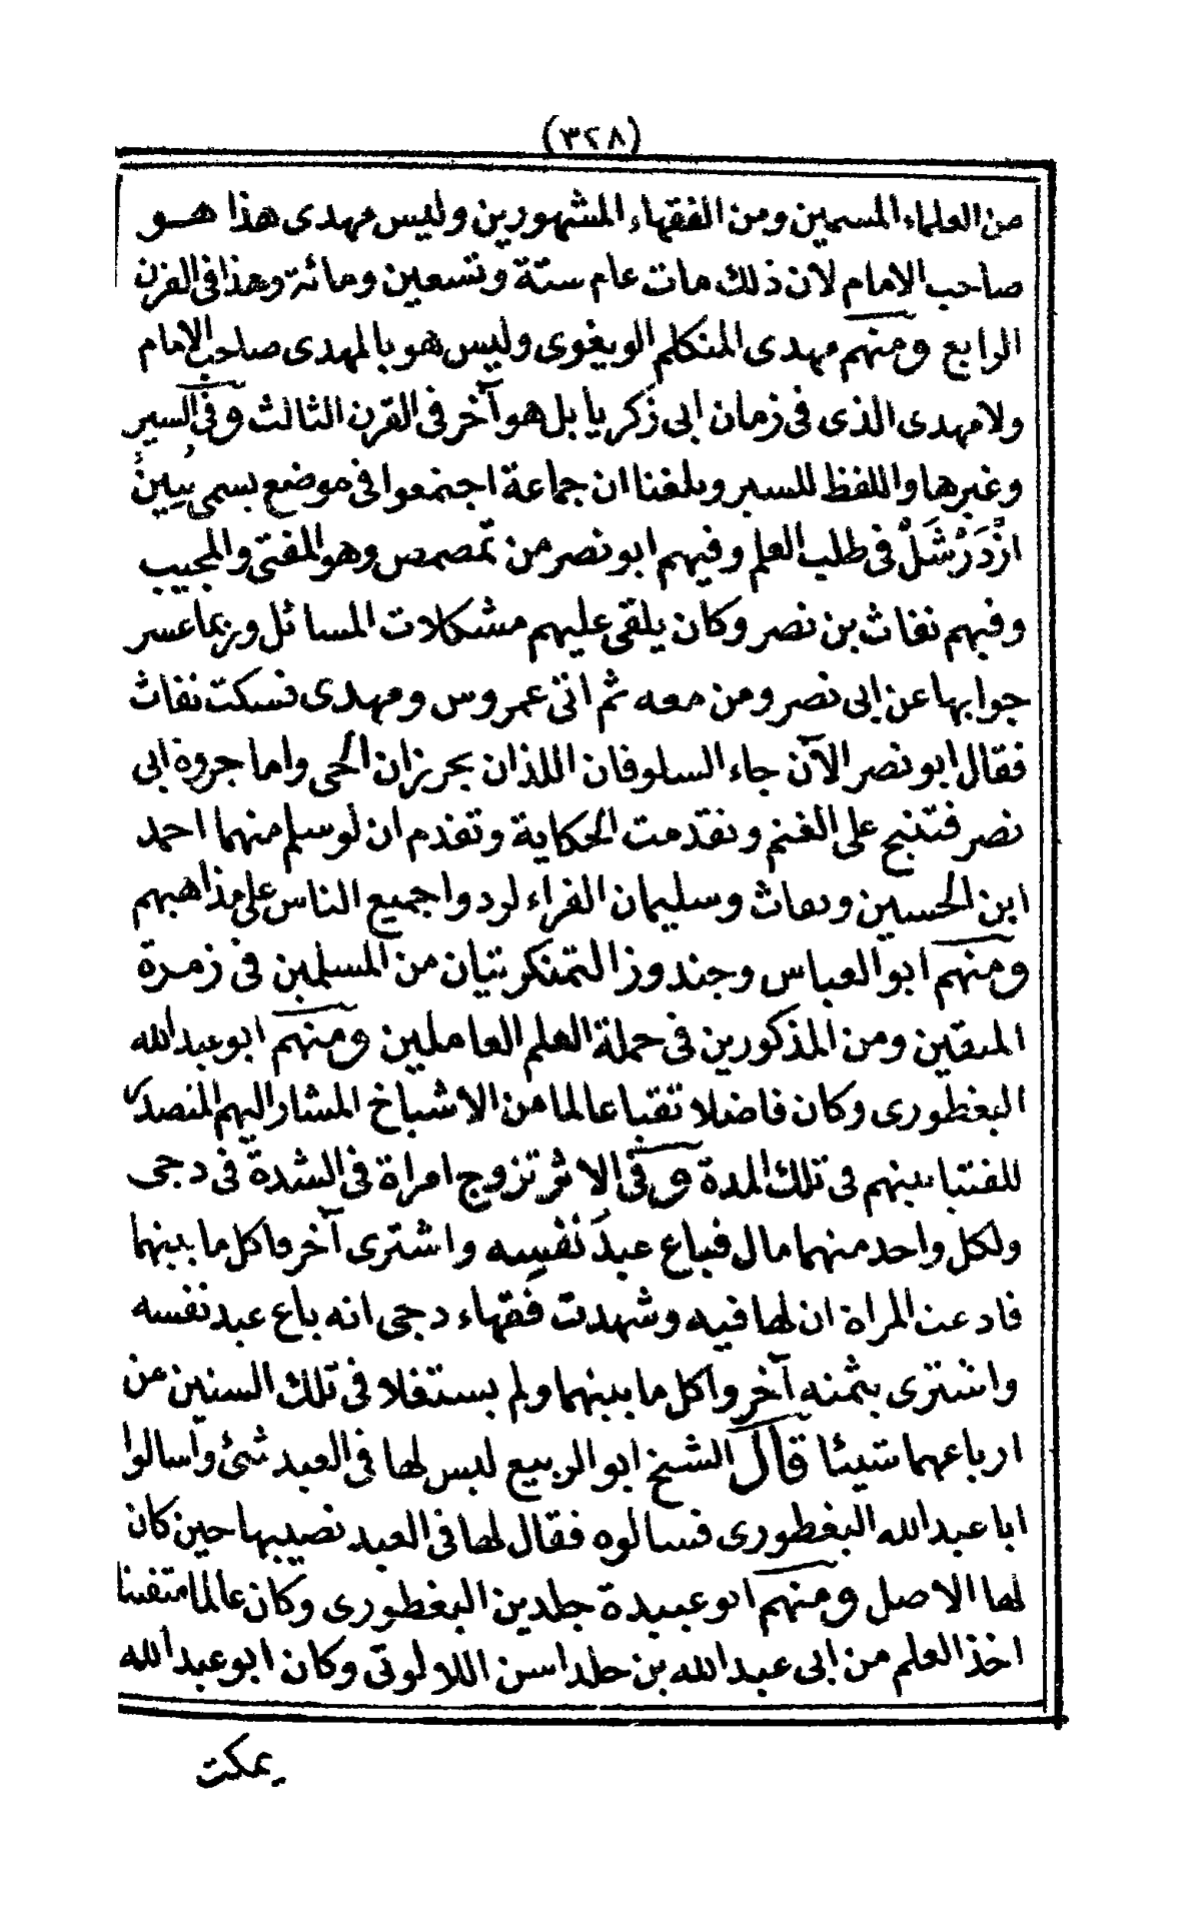 (٣٢٨)
من العلماء المسمين ومن الفقهاء المشهورين وليس مهدى هذا هو
صاحب الامام لان ذلك مات عام ستة وتسعين ومائة وهذا فى القرن
الرابع ومنهم مهدى المتكلم الويغوى وليس هو بالمهدى صاحب الامام
ولا مهدى الذى فى زمان ابى زكريا بل هو آخر فى القرن الثالث وفى السير
وغيرها واللفظ للسير وبلغنا ان جماعة اجتمعوا فى موضع يسمى
فى طلب العلم وفيهم ابو نصر من تمصمص وهو المفتى والمجيب
وفيهم نفاث بن نصر وكان يلقى عليهم مشكلات المسائل وربما عسر
جوابها عن ابى نصر ومن معه ثم اتى عمروس ومهدى فسكت نفاث
فقال ابو نصر الآن جاء السلوقان اللذان يحرزان الحى واما جروة ابى
نصر فتنبح على الغنم وتقدمت الحكاية وتقدم ان لو سلم منهما احمد
ابن الحسين ونفاث وسليمان الفراء لردوا جميع الناس على مذاهبهم
ومنهم ابو العباس وجندوز التمنكرتيان من المسلمين فى زمرة
المتقين ومن المذكورين فى حملة العلم العاملين ومنهم ابو عبد الله
البغطورى وكان فاضلا تقيا عالما من الاشياخ المشار اليهم المتصد
للفتيا بينهم فى تلك المدة وفى الاثر تزوج امراة فى الشدة فى دجى
ولكل واحد منهما مال فباع عبد نفسه واشترى آخر فاكل ما بينهما
فادعت المراة ان لها فيه وشهدت فقهاء دجى انه باع عبد نفسه
واشترى بثمنه آخر واكل ما بينهما ولم يستغلا فى تلك السنين من
ارباعهما شيئا قال الشيخ ابو الربيع ليس لها فى العبد شئ واسالوا
ابا عبد الله البغطورى فسالوه فقال لها فى العبد نصيبها حين كان
لها الاصل ومنهم ابو عبيدة جلدين البغطورى وكان عالما متفننا
اخذ العلم من ابى عبد الله بن جلداسن اللالوتى وكان ابو عبد الله
يمكث